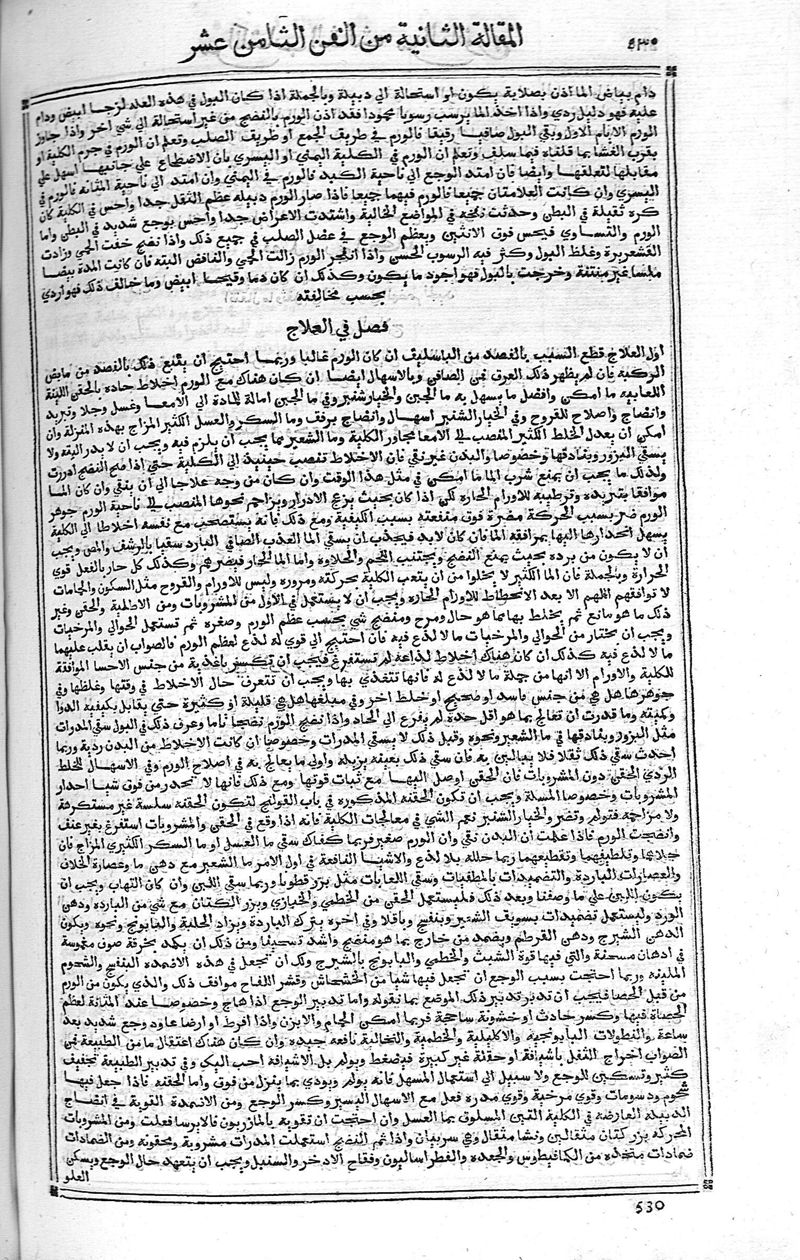 ٥٣٠ المقالة الثانية من الفن الثامن عشر
دام بياض الما اذن بصلابة يكون او استحالة الي دبيلة وبالجملة اذا كان البول في هذه العله لزجا ابيض ودام
علية فهو دليل ردي واذا اخذ الما يرسب رسوبا محمودا فقد اذن الورم بالنضج من غير استحالة الي شي اخر واذا جاوز
الورم الايام الاول وبقي البول صافيا رقيقا فالورم في طريق الجمع او طريق الصلب وتعلم ان الورم في جرم الكلية او
بقرب الغشا بما قلناه فيما سلف وتعلم ان الورم في الكلية اليمني او اليسري بان الاضطجاع علي جانبها اسهل علي
مقابلها لتعلقها وايضا فان امتد الوجع الي ناحية الكبد فالورم في اليمني وان امتد الي ناحية المثانه فالورم في
اليسري وان كانت العلامتان جميعا فالورم فيهما جميعا فاذا صار الورم دبيله عظم الثقل جدا واحس في الكلية كان
كرة ثقيلة في البطن وحدثت نفخه في المواضع الخالية واشتدت الاعراض جدا واحس بوجع شديد في البطن واما
الورم فيحس فوق الانثيين ويعظم الوجع في عضل الصلب في جميع ذلك واذا نضج خفت الحمي وزادت
القشعريرة وغلظ البول وكثر فيه الرسوب الحسن واذا انفجر الورم زالت الحمي والنافض البته فان كانت المدة بيضا
ملسا غير منتنة وخرجت بالبول فهو اجود ما يكون وكذلك ان كان دما وقيحا ابيض وما خالف ذلك فهو اردي
بحسب مخالفته
فصل في العلاج
اول العلاج قطع السبب بالفصد من الباسليق ان كان الورم غالبا وربما احتيج ان يتبع ذلك بالفصد من مابض
الركبة فان لم يظهر ذلك العرق فمن الصافن وبالاسهال ايضا ان كان هناك مع الورم اخلاط حاده بالحقن اللينة
اللعابيه ما امكن وافضل ما يسهل به ما الجبن والخيارشنبر وفي ما الجبن امالة المادة الي الامعا وغسل وجلا وتبريد
وانضاج واصلاح للقروح وفي الخيار الشنبر اسهال وانضاج برفق وما السكر والعسل الكثير المزاج بهذه المنزلة وان
امكن ان يعدل الخلط الكثير المنصب الي الامعا مجاور الكلية وما الشعير مما يجب ان يلزم فيه ويجب ان لا يدر البته ولا
يسقي البزور وخصوصا والبدن غير نقي فان الاخلاط تنصب حينيذ الي الكلية حتي اذا صح النضج ادررت
ولذلك ما يجب ان يمنع شرب الما ما امكن في مثل هذا الوقت وان كان من وجه علاجا الي ان ينقي وان كان الما
موافقا بتبريده وترطيبه للاورام الحاره لكن اذا كان بحيث يزعج الادرار ويزاحم نحوها المنصب الي ناحية الورم جوهر
الورم ضر بسبب الحركة مضرة فوق منفعته بسبب الكيفية ومع ذلك فانه يستصحب مع نفسه اخلاطا الي الكلية
يسهل انحدارها اليها بمرافقه الما فان كان لابد فيجب ان يسقي الما العذب الصافي البارد سقيا بالرشف والمص ويجب
ان لا يكون من برده بحيث يمنع النضج ويجتنب اللحم والحلاوة واما الما الحار فيضرهم وكذلك كل حار بالفعل قوي
الحرارة وبالجملة فان الما الكثير لا يخلوا من ان يتعب الكلية بحركته ومروره وليس للاورام والقروح مثل السكون والحمامات
لا توافقهم اللهم الا بعد الانحطاط للاورام الحاره ويجب ان لا يستعمل في الاول من المشروبات ومن الاطلية والحقن وغير
ذلك ما هو مانع ثم يخلط بهما ما هو حال ومرخ ومنضج شي بحسب عظم الورم وصغره ثم تستعمل الحوالي والمرخيات
ويجب ان يختار من الحوالي والمرخيات ما لا لذع فيه فان احتيج الي قوي له لذع لعظم الورم فالصواب ان يغلب عليهما
ما لا لذع فيه كذلك ان كان هناك اخلاط لذاعة لم تستفرغ فيجب ان تكسر باغذية من جنس الاحسا الموافقة
للكلية والاورام الا انها من جملة ما لا لذع له فانها تتغذي بها ويجب ان تتعرف حال الاخلاط في رقتها وغلظها وفي
جوهرها هل هي من جنس فاسد او صحيح او خلط اخر وفي مبلغها هل هي قليلة او كثيرة حتي يقابل بكيفيه الدوا
وكميته وما قدرت ان تعالج بما هو اقل حدة لم يفزع الي الحاد واذا نضج الورم نضجا تاما وعرف ذلك في البول سقي المدرات
مثل البزور في ما الشعير ونحوه وقبل ذلك لا يسقي المدرات وخصوصا ان كانت الاخلاط من البدن ردية وربما
احدث سقي ذلك ثقلا فلا يبالين به فان سقي ذلك بعينه يزيله واولي ما يعالج به في اصلاح الورم وفي الاسهال للخلط
الردي الحقن دون المشروبات فان الحقن اوصل اليها مع ثبات قوتها ومع ذلك فانها لا تحدر من فوق شيا احدار
المشروبات وخصوصا المسهلة ويجب ان تكون الحقنه المذكوره في باب القولنج لتكون الحقنه سلسة غير مستكرهة
ولا مزاحمه فتولم وتضر والخيار الشنبر نعم الشي في معالجات الكلية فانه اذا وقع في الحقن والمشروبات استفرغ بغير عنف
وانضجت الورم فاذا علمت ان البدن نقي وان الورم صغير فربما كفاك سقي ما العسل او ما السكر الكثيري المزاج فان
جلاهما وتلطيفهما وتقطيعهما ربما حلله بلا لذع والاشيا النافعة في اول الامر ما الشعير مع دهن ما وعصارة الخلاف
والعصارات الباردة والتضميدات بالمطفيات وسقي اللعابات مثل بزر قطونا وربما سقي اللبن وان كان التهاب ويجب ان
يكون اللبن علي ما وصفنا وبعد ذلك فليستعمل الحقن من الخطمي والخبازي وبزر الكتان مع شي من الباردة ودهن
الورد وليستعمل تضميدات بسويق الشعير وبنفسج وباقلا وفي اخره يترك الباردة ويزاد الحلبة والبابونج ونحوه ويكون
الدهن الشيرج ودهن القرطم ويضمد من خارج بما هو منضج واشد تسخينا ومن ذلك ان يكمد بخرقة صوف مغموسة
في ادهان مسخنة والتي فيها قوة الشبث والخطمي والبابونج بالشيرج ولك ان تجعل في هذه الاضمده البنفسج والشحوم
الملينه وربما احتجت بسبب الوجع ان تجعل فيها شيا من الخشخاش وقشر اللفاح موافق ذلك والذي يكون من الورم
من قبل الحصاة فيجب ان تدبر تدبير ذلك الموضع بما نقوله واما تدبير الوجع اذا هاج وخصوصا عند المثانة لعظم
الحصاة فيها وكسر حادث او خشونة ساحجة فربما امكن الحمام والابزن واذا افرط او ارضا عاود وجع شديد بعد
ساعة والنطولات البابونجيه والاكليلية والخطمية والنخالية نافعه جيده وان كان هناك اعتقال ما من الطبيعة فمن
الصواب اخراج الثفل باشيافة او حقنة غير كبيرة فيضغط ويولم بل الاشيافة احب اليك وفي تدبير الطبيعة تخفيف
كثير وتسكين للوجع ولا سبيل الي استعمال المسهل فانه يولم ويودي بما ينزل من فوق واما الحقنه فاذا جعل فيها
شحوم ودسومات وقوي مرخية وقوي مدره فعل مع الاسهال اليسير وكسر الوجع ومن الاضمدة القوية في انضاج
الدبيلة العارضة في الكلية التين المسلوق بما العسل وان احتجت ان تقويه بالمازريون فالايرسا فعلت ومن المشروبات
المحركه بزر كتان مثقالين ونشا مثقال وهي سربيان واذا تم النضج استعملت المدرات مشروبة ومحقونه ومن الضمادات
ضمادات متخذه من الكمافيطوس والجعده والفطراساليون وفقاح الاذخر والسنبل ويجب ان يتعهد حال الوجع ويسكن
العلو
530